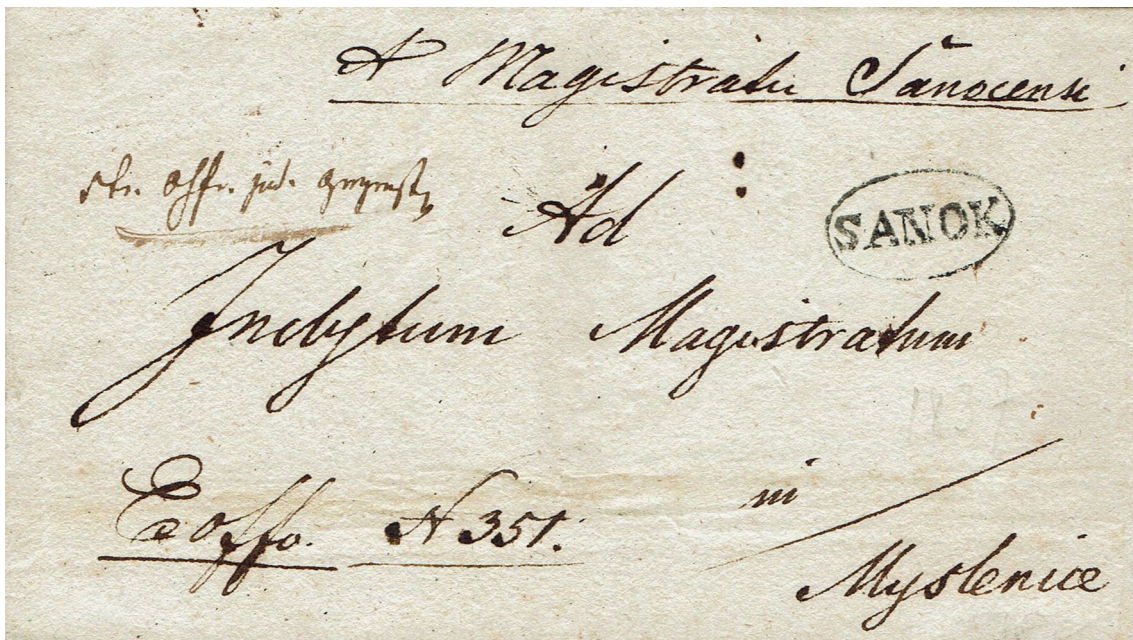 A Magistratu Sanocensi
Ad
SANOK
Inclytum Magistratum
Ex offo. N 351.
in
Myslenice